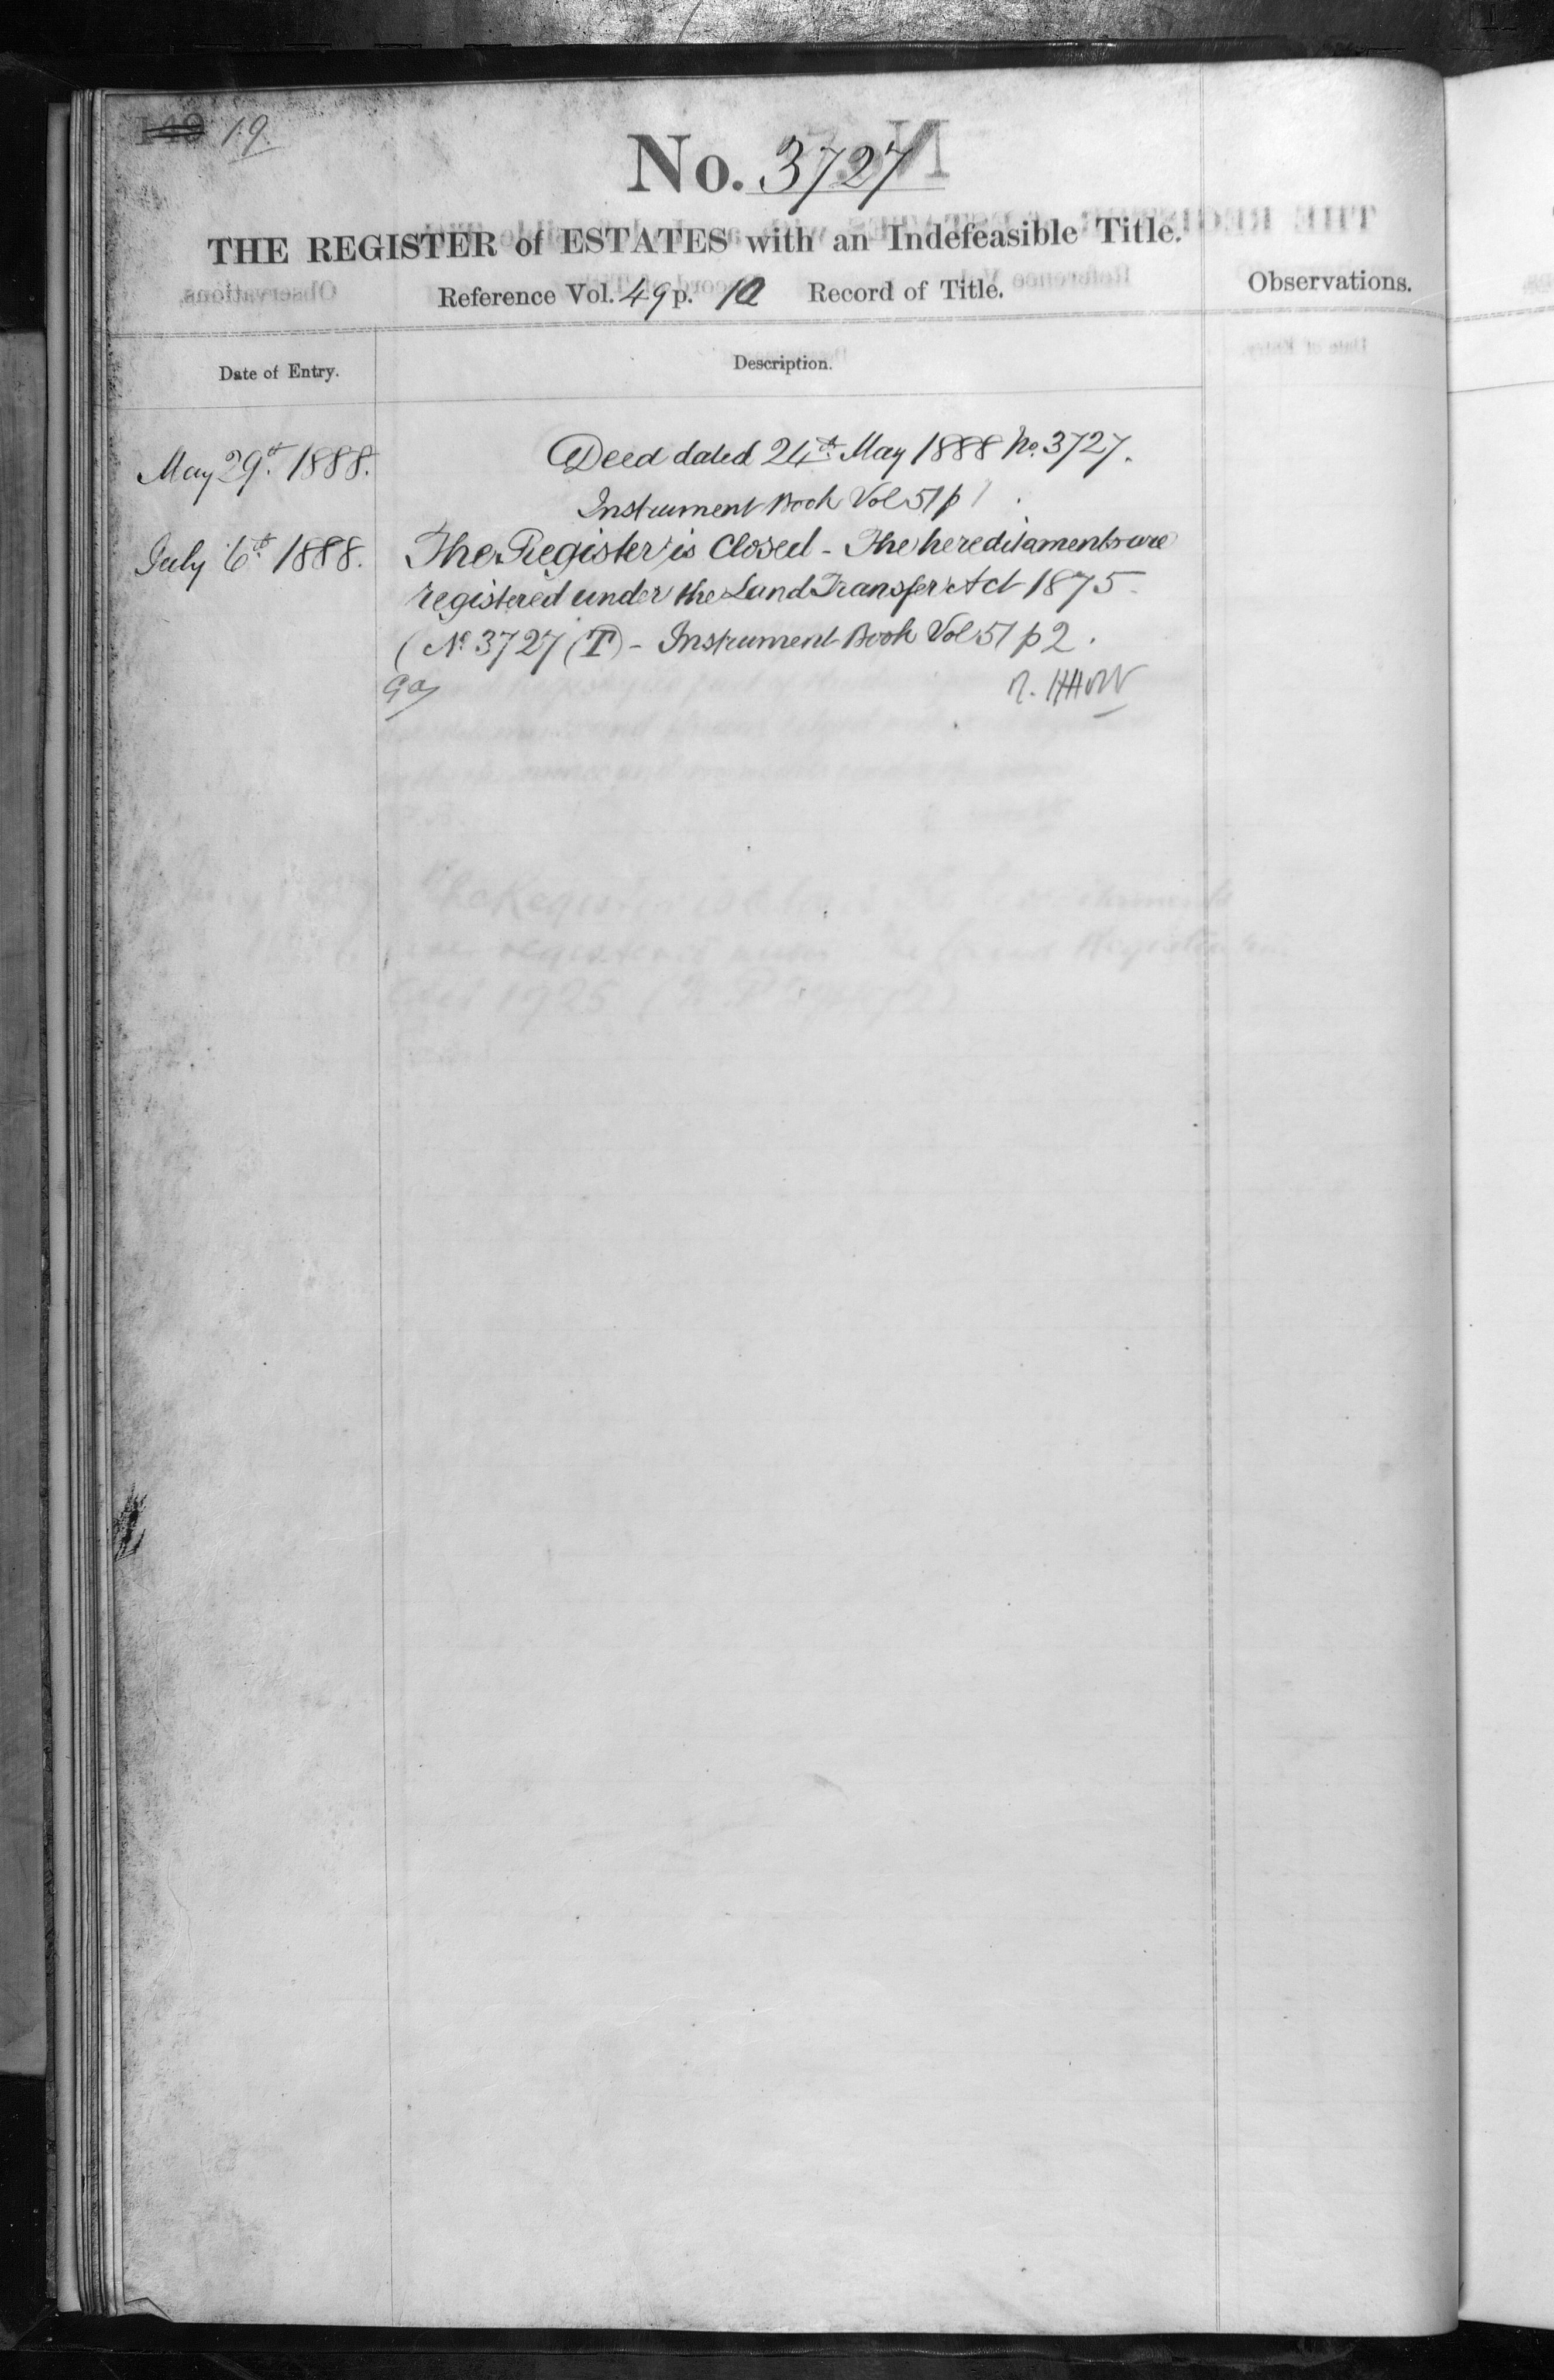 149 19.
No. 3727
THE REGISTER of ESTATES with an Indefeasible Title.
Reference Vol. 49 p. 10 Record of Title.
Observations.
Date of Entry.
Description.
May 29th 1888.
Deed dated 24th May 1888 No. 3727.
Instrument Book Vol 51 p 1.
July 6th 1888.
The Register is Closed - The hereditaments are
registered under the Land Transfer Act 1875.
(No 3727 (T) - Instrument Book Vol 51 p 2.